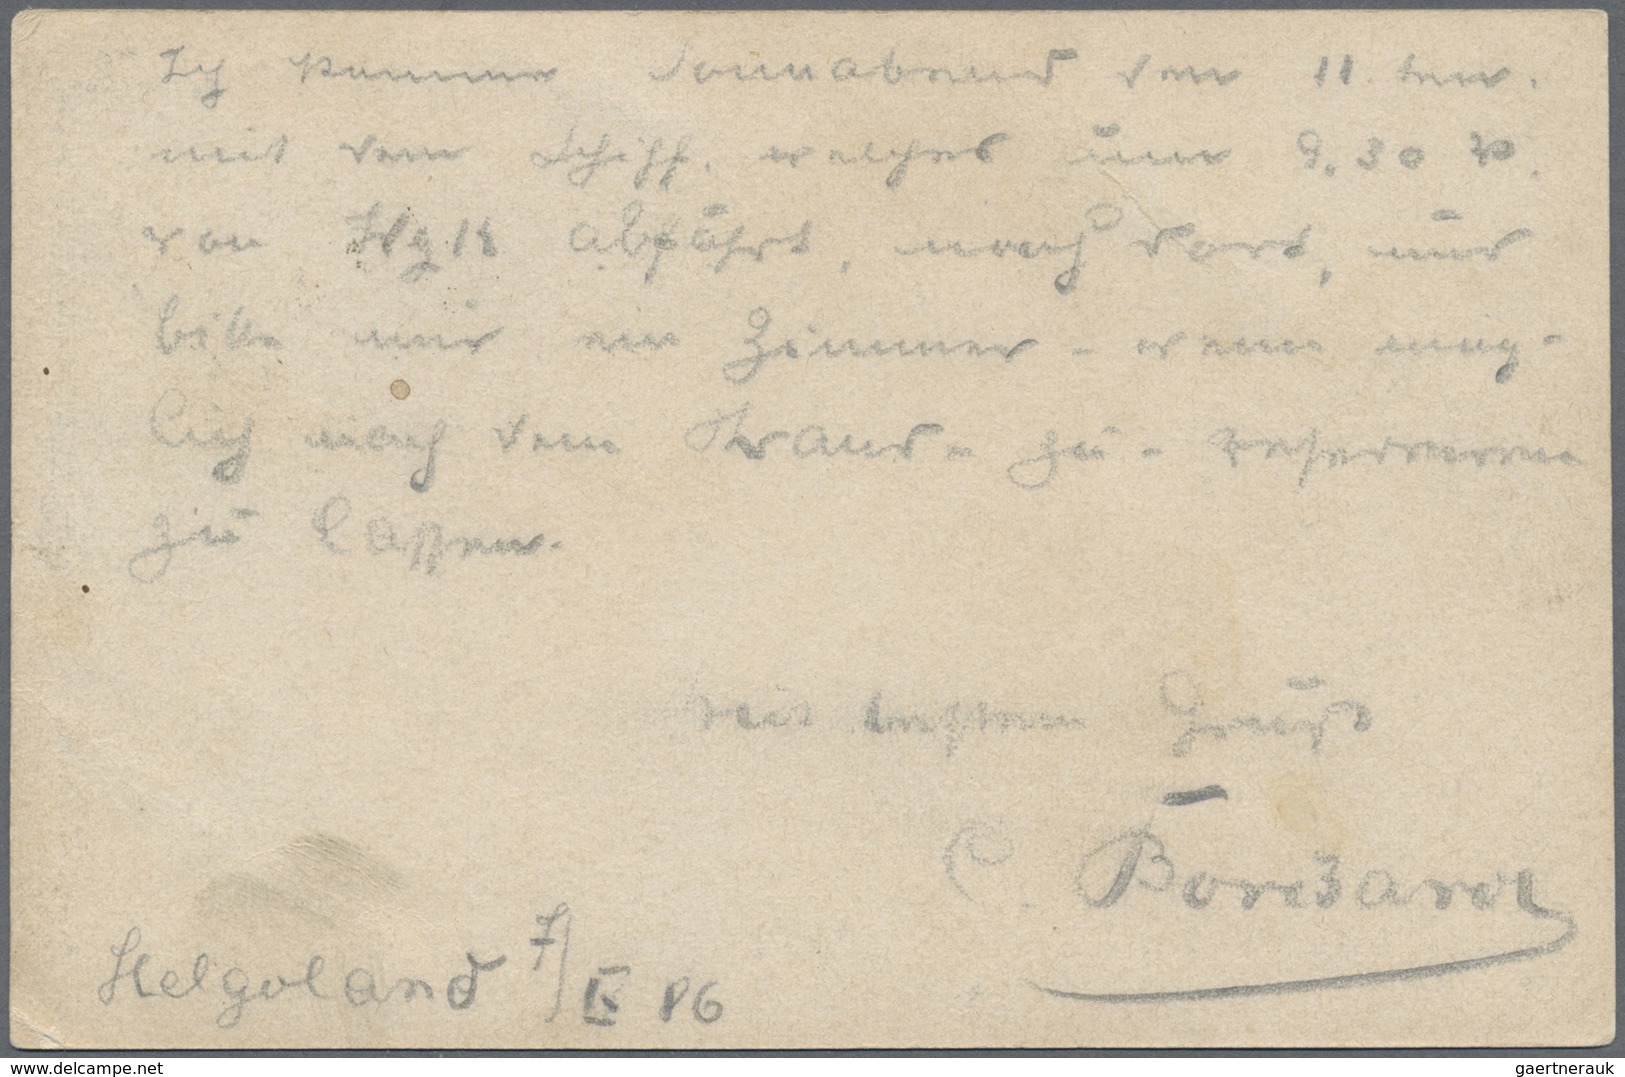 Ich komme Sonnabend den 11 ten.
mit dem Schiff, welches um 9.30
von abfährt, nach dort, und
bitte mir ein Zimmer - wenn mög-
lich nach dem Strande zu - reservieren
zu lassen.
Mit bestem Gruß
C.
Helgoland 7/IX 86
www.delcampe.net
gaertnerauk